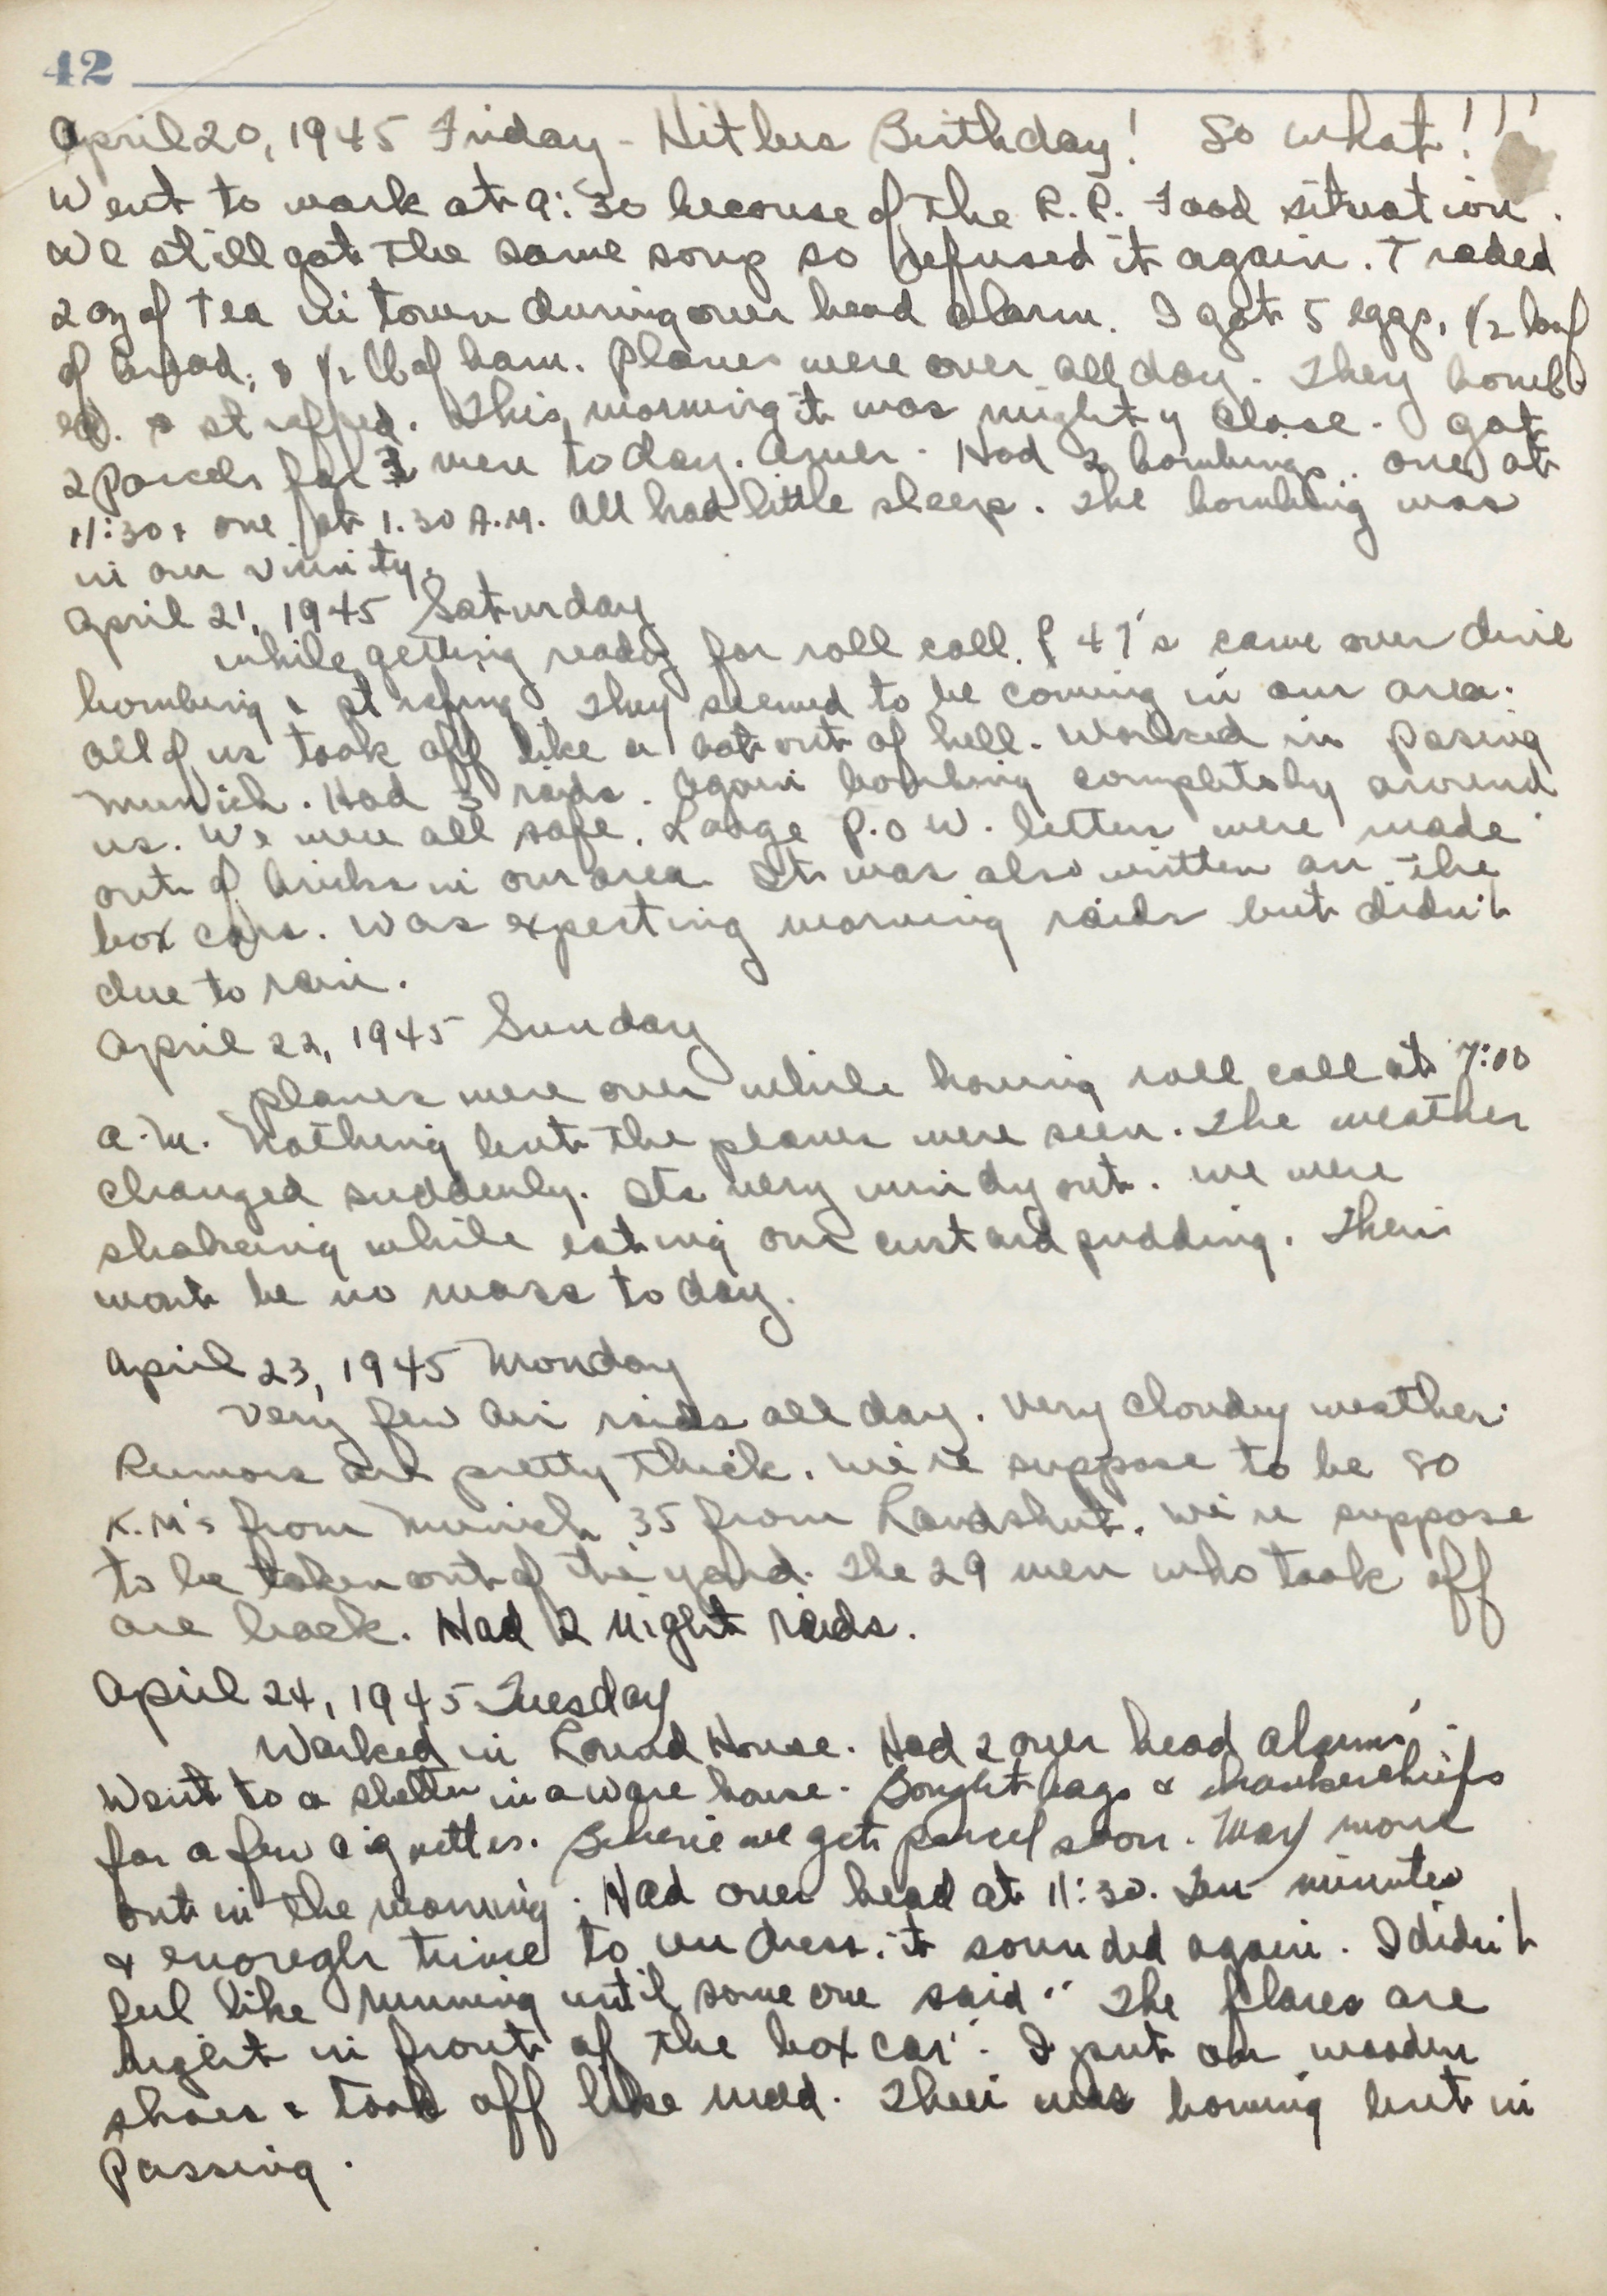 42
April 20, 1945 Friday - Hitlers Birthday! So what!!!
Went to work at 9:30 because of the R.R. Food situation.
We still got the same soup so refused it again. Traded
2 oz of Tea in town during over head alarm. I got 5 eggs, 1/2 loaf
of bread, & 1/2 lb of ham. Planes were over all day. They bomb-
ed. & straffed. This morning it was mighty close. I got
2 parcels for 3 men today. Amer. Had 2 bombings. one at
11:30 & one at 1.30 A.M. All had little sleep. The bombing was
in our vinity.
April 21, 1945 Saturday
While getting ready for roll call. P 47's came over dive
bombing & strafing. They seemed to be coming in our area.
All of us took off like a bat out of hell. Worked in Pasing
Munich. Had 3 raids. Again bombing completely around
us. We were all safe. Large P.O.W. letters were made
out of bricks in our area. It was also written on the
box cars. Was expecting morning raids but didn't
due to rain.
April 22, 1945 Sunday
Planes were over while having roll call at 7:00
A.M. Nothing but the planes were seen. The weather
changed suddenly. Its very windy out. We were
shakeing while eating our custard pudding. Their
wont be no mass today.
April 23, 1945 Monday
Very few air raids all day. Very cloudy weather.
Rumors are pretty thick. We're suppose to be 80
K.M's from Munich 35 from Landshut. We're suppose
to be taken out of the yard. The 29 men who took off
are back. Had 2 night raids.
April 24, 1945 Tuesday
Worked in Round House. Had 2 over head alarms.
Went to a shelter in a ware house. Bought bags & hankerchiefs
for a few cigrettes. Believe we get parcel soon. May move
out in the morning. Had over head at 11:30. Ten minutes
& enough time to undress, it sounded again. I didn't
feel like running until some one said "The flares are
right in front of the box car". I put on wooden
shoes & took off like mad. Their was boming but in
Passing.